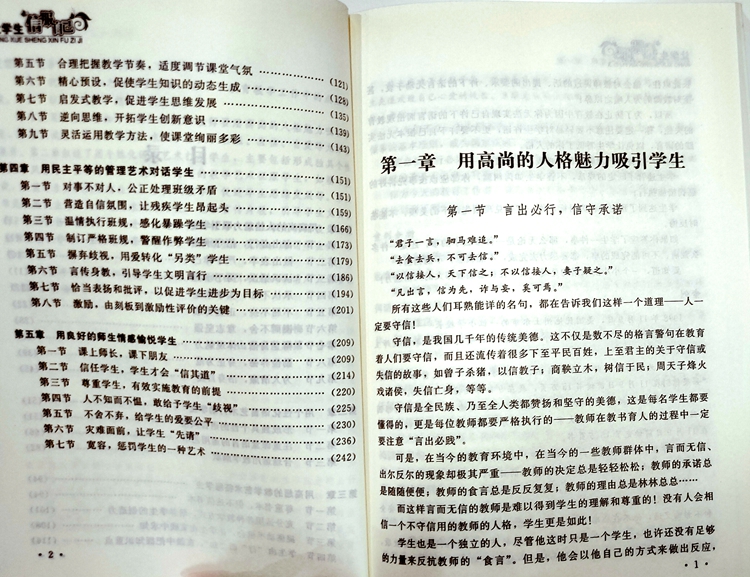 第五节 合理把握教学节奏，适度调节课堂气氛 ……………(121)
第六节 精心预设，促使学生知识的动态生成 ……………(128)
第七节 启发式教学，促进学生思维发展 ……………(135)
第八节 逆向思维，开拓学生创新意识 ……………(139)
第九节 灵活运用教学方法，使课堂绚丽多彩 ……………(143)
第四章 用民主平等的管理艺术对话学生 ……………(151)
第一节 对事不对人，公正处理班级矛盾 ……………(151)
第二节 营造自信氛围，让残疾学生昂起头 ……………(159)
第三节 温情执行班规，感化暴躁学生 ……………(166)
第四节 制订严格班规，警醒作弊学生 ……………(173)
第五节 摒弃歧视，用爱转化“另类”学生 ……………(179)
第六节 言传身教，引导学生文明言行 ……………(186)
第七节 恰当表扬和批评，以促进学生进步为目标 ……………(194)
第八节 激励，由刻板到激励性评价的关键 ……………(201)
第五章 用良好的师生情感愉悦学生 ……………(209)
第一节 课上师长，课下朋友 ……………(209)
第二节 信任学生，学生才会“信其道” ……………(214)
第三节 尊重学生，有效实施教育的前提 ……………(220)
第四节 人不知而不愠，敢给予学生“歧视” ……………(225)
第五节 不舍不弃，给学生的爱要公平 ……………(230)
第六节 灾难面前，让学生“先请” ……………(236)
第七节 宽容，惩罚学生的一种艺术 ……………(242)
· 2 ·
第一章 用高尚的人格魅力吸引学生
第一节 言出必行，信守承诺
“君子一言，驷马难追。”
“去食去兵，不可去信。”
“以信接人，天下信之；不以信接人，妻子疑之。”
“凡出言，信为先，诈与妄，奚可焉。”
所有这些人们耳熟能详的名句，都在告诉我们这样一个道理——人一
定要守信！
守信，是我国几千年的传统美德。这不仅是数不尽的格言警句在教育
着人们要守信，而且还流传着很多下至平民百姓，上至君主的关于守信或
失信的故事，如曾子杀猪，以信教子；商鞅立木，树信于民；周天子烽火
戏诸侯，失信亡身，等等。
守信是全民族、乃至全人类都赞扬和坚守的美德，这是每名学生都要
懂得的，更是每位教师都要严格执行的——教师在教书育人的过程中一定
要注意“言出必践”。
可是，在当今的教育环境中，在当今的一些教师群体中，言而无信、
出尔反尔的现象却极其严重——教师的决定总是轻轻松松；教师的承诺总
是随随便便；教师的食言总是反反复复；教师的理由总是林林总总……
而这样言而无信的教师是难以得到学生的理解和尊重的！没有人会相
信一个不守信用的教师的人格，学生更是如此！
学生也是一个独立的人，尽管他这时只是一个学生，也许还没有足够
的力量来反抗教师的“食言”。但是，他会以他自己的方式来做出反应，
· 1 ·